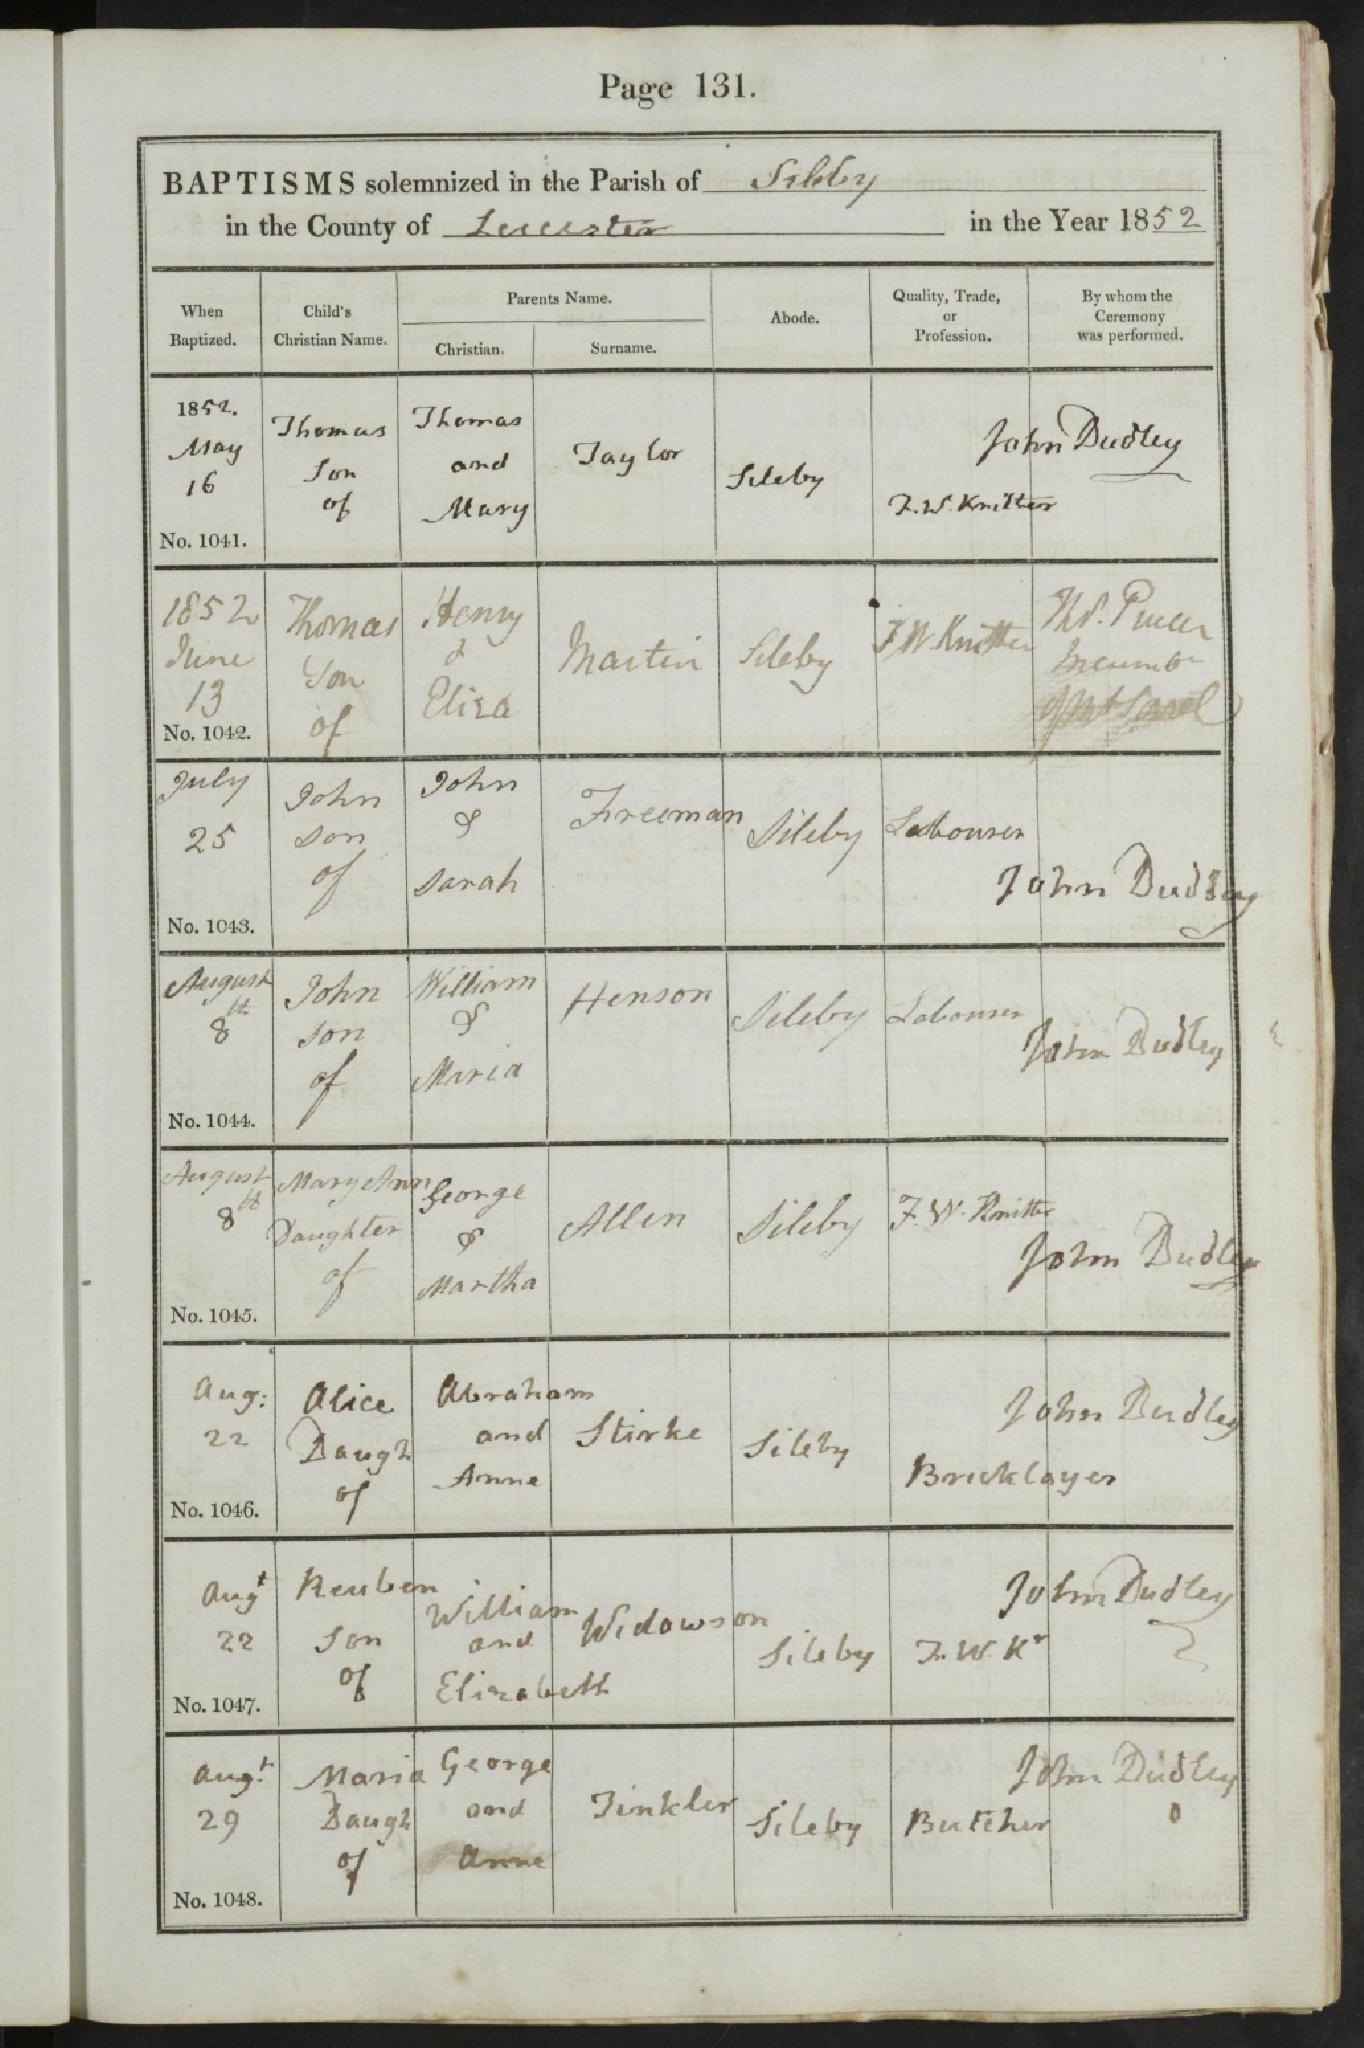 Page 131.
BAPTISMS solemnized in the Parish of Sileby
in the County of Leicester in the Year 1852
When Baptized.
Child's Christian Name.
Parents Name.
Christian.
Surname.
Abode.
Quality, Trade, or Profession.
By whom the Ceremony was performed.
1852.
May
16
No. 1041.
Thomas
Son
of
Thomas
and
Mary
Taylor
Sileby
F.W. Knitter
John Dudley
1852
June
13
No. 1042.
Thomas
Son
of
Henry
&
Eliza
Martin
Sileby
F W. Knitter
July
25
No. 1043.
John
son
of
John
&
Sarah
Freeman
Sileby
Labourer
John Dudley
August
8th
No. 1044.
John
son
of
William
&
Maria
Henson
Sileby
Labourer
John Dudley
August
8th
No. 1045.
Mary Ann
Daughter
of
George
&
Martha
Allen
Sileby
F. W. Knitter
John Dudley
Aug:
22
No. 1046.
Alice
Daugh
of
Abraham
and
Anne
Stirke
Sileby
Bricklayer
John Dudley
Augt
22
No. 1047.
Reuben
Son
of
William
and
Elizabeth
Widowson
Sileby
F. W. Kr
John Dudley
Augt.
29
No. 1048.
Maria
Daugh
of
George
and
Anne
Tinkler
Sileby
Butcher
John Dudley